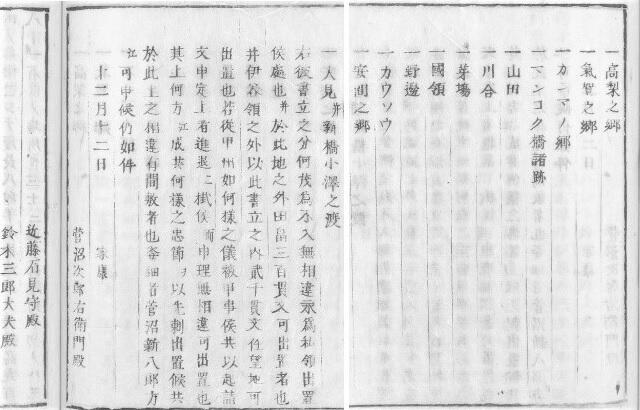 一 高梨之郷
一 氣賀之郷
一 カンマノ郷
一 マンコク橋諸跡
一 山田
一 川合
一 芽場
一 國領
一 野邊
一 カウソウ
一 安間之郷
一 人見并新橋小澤之渡
右彼書立之分何茂為不入無相違永為私領出置
侯處也并於此地之外田畠三百貫文可出置者也
井伊谷領之外以此書立之内貳千貫文任望地可
出置也若從甲州如何様之儀被申事侯共以起請
文申定上者進退ニ掛侯而申理無相違可出置也
其上何方江成共何様之忠節ヲ以先判出置候共
於此上之相違有間敷者也委細者菅沼新八郎方
江可申候仍如件
十二月十二日 家康
菅沼次郎右衛門殿
近藤石見守殿
鈴木三郎大夫殿